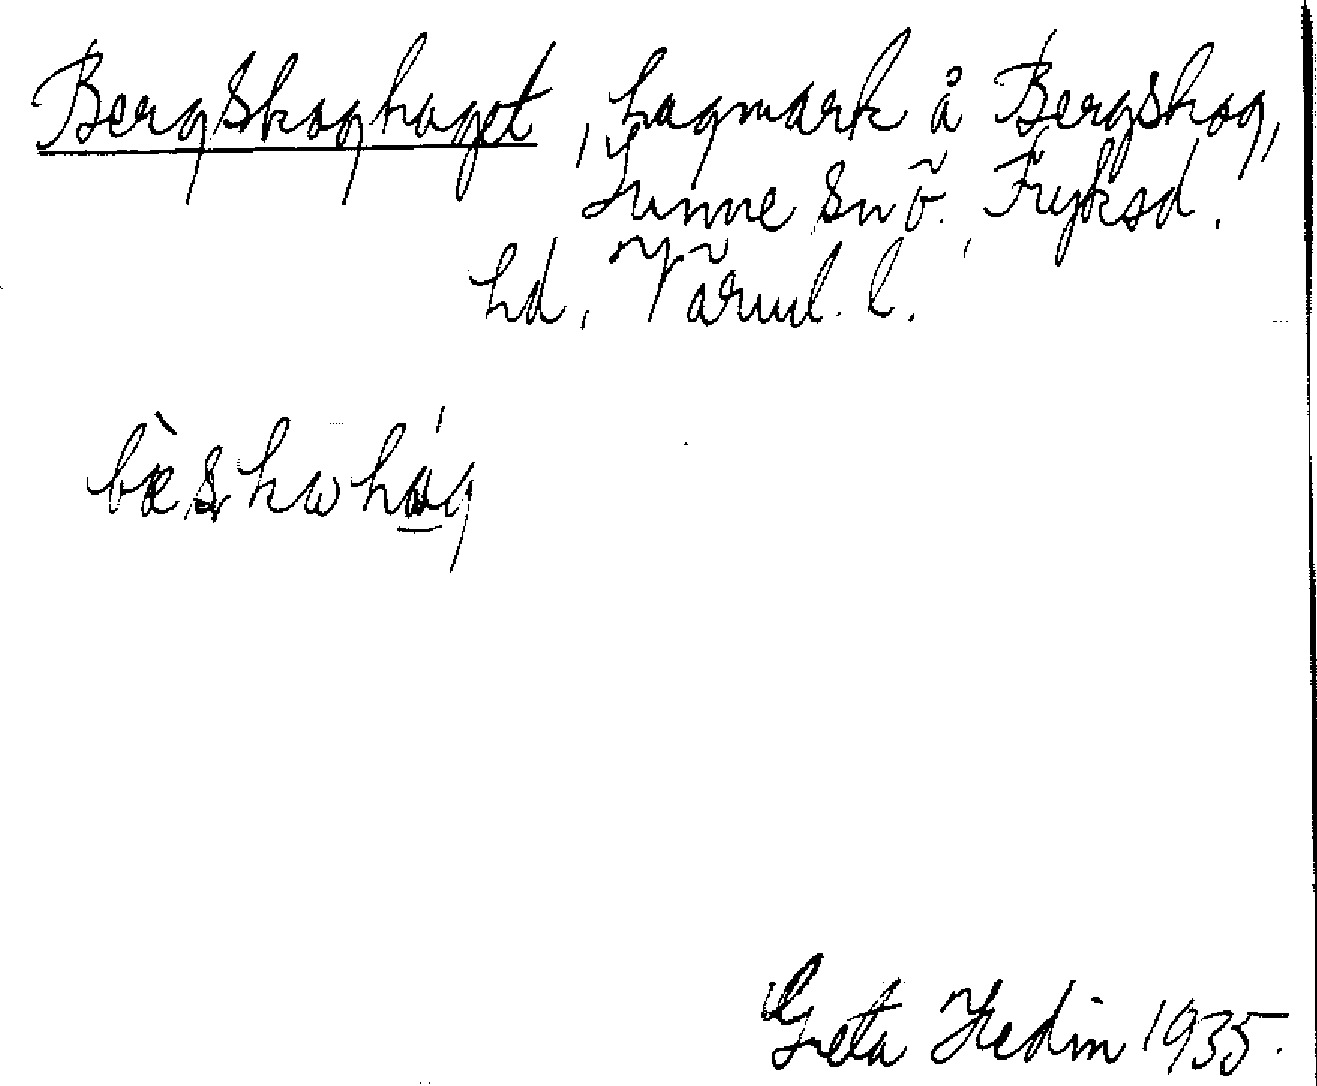 Bergskoghaget, hagmark å Bergskog,
Sunne snö. Fryksd.
hd, Värml. l.
bæ̀skωhág
Greta Hedin 1935.